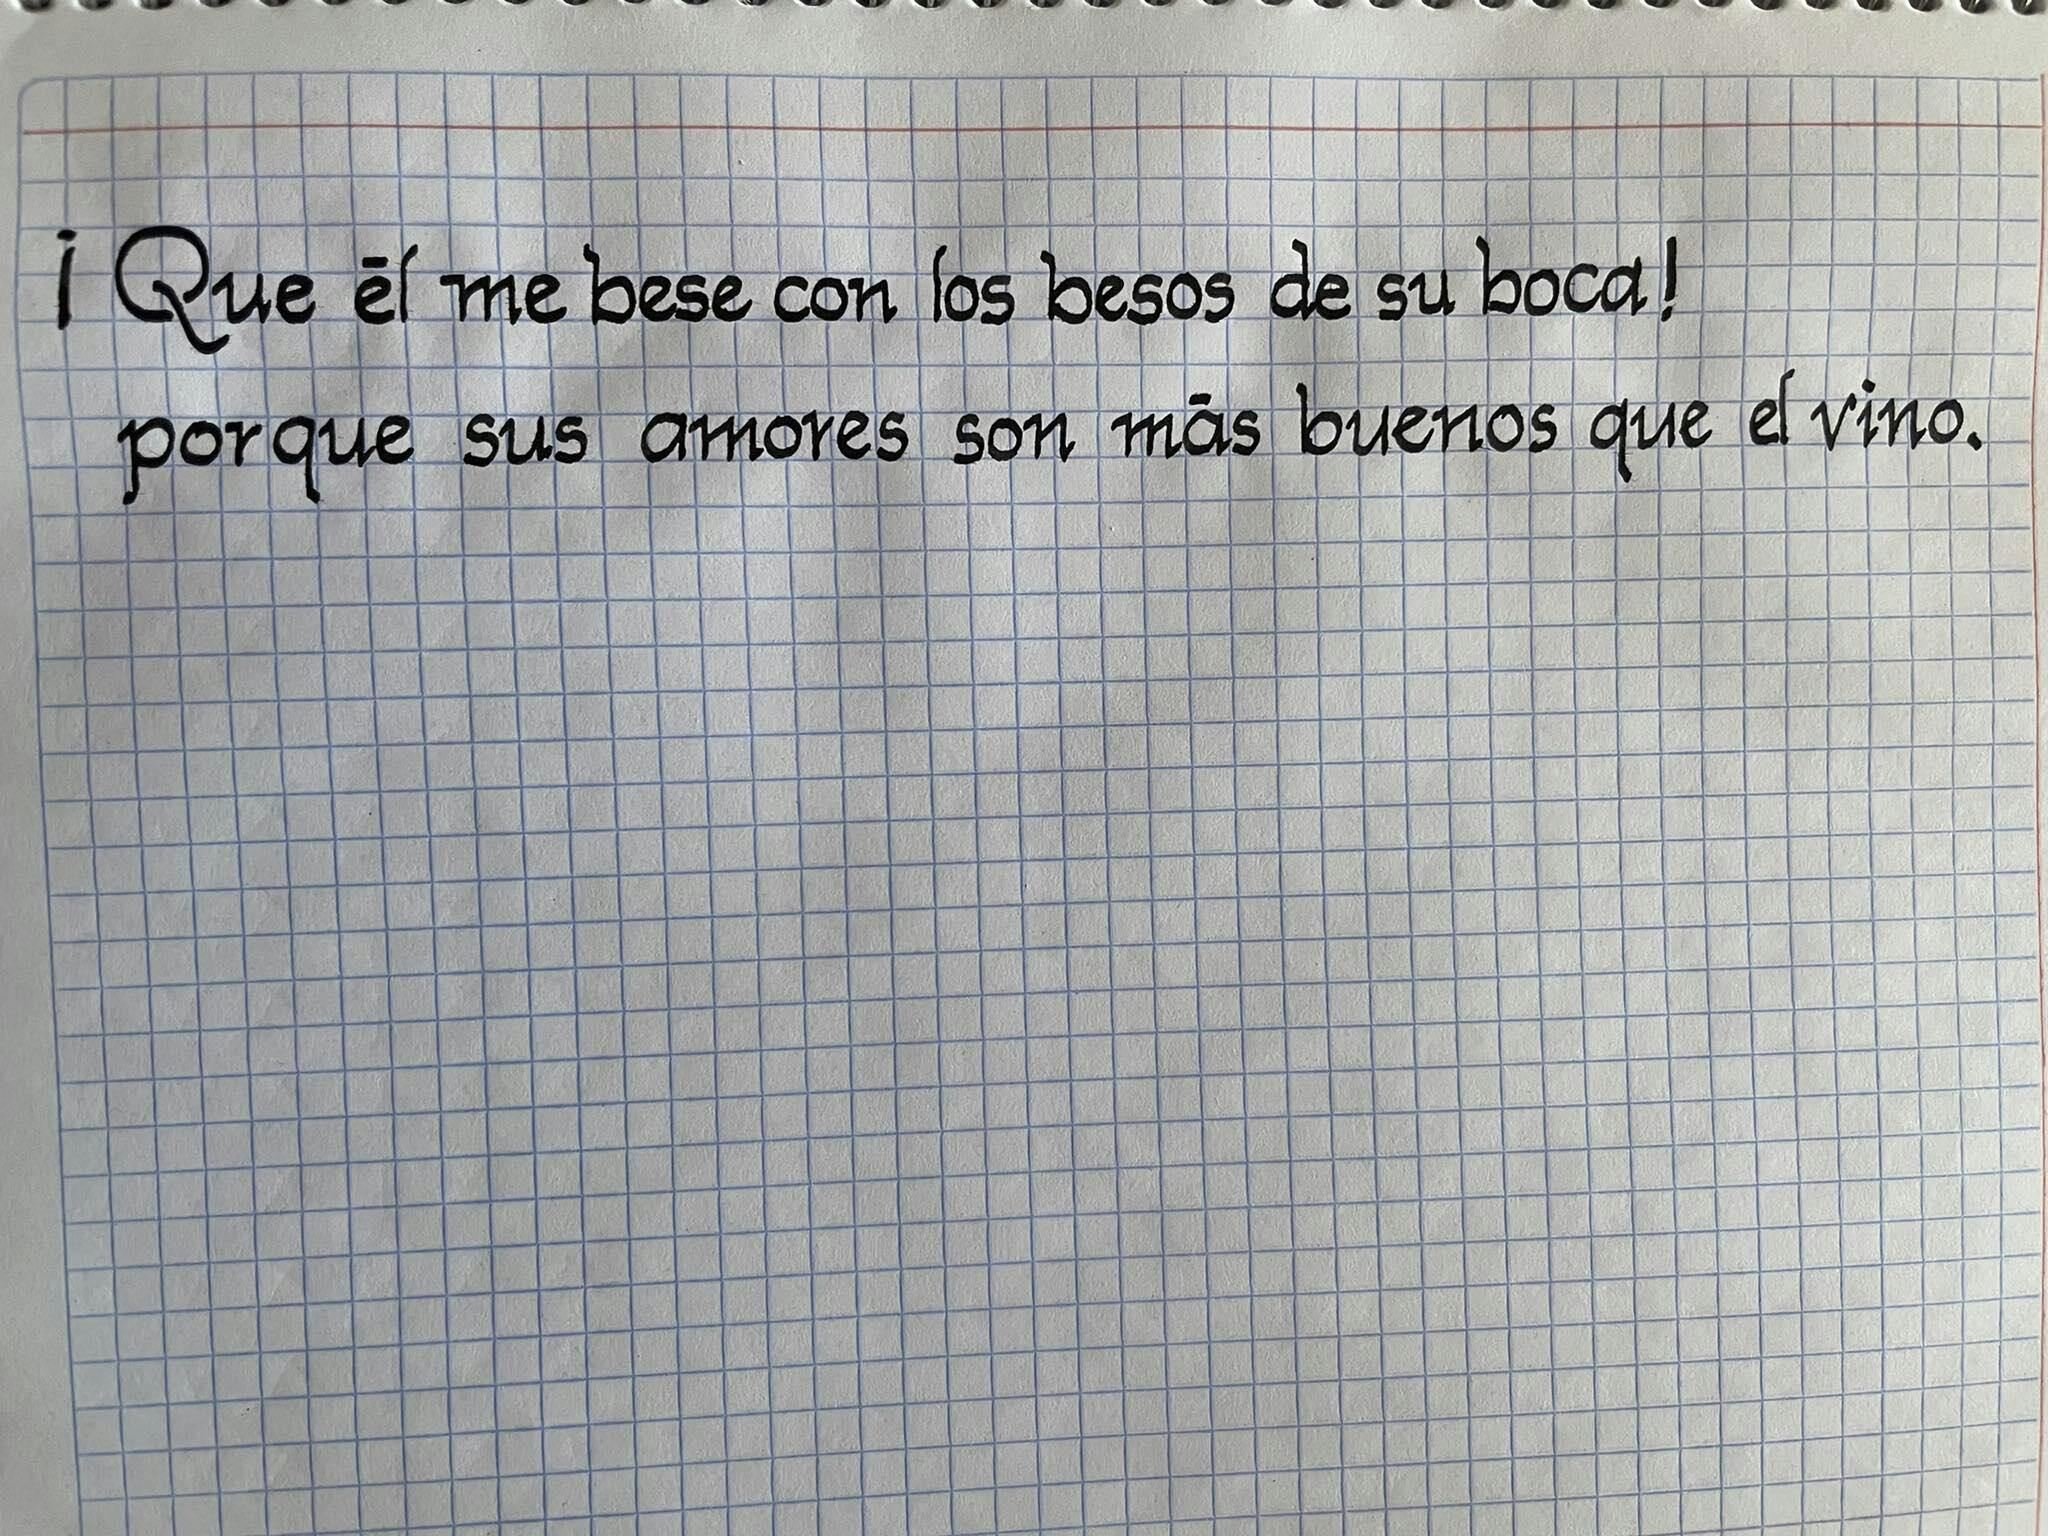 ¡Que él me bese con los besos de su boca!
porque sus amores son más buenos que el vino.